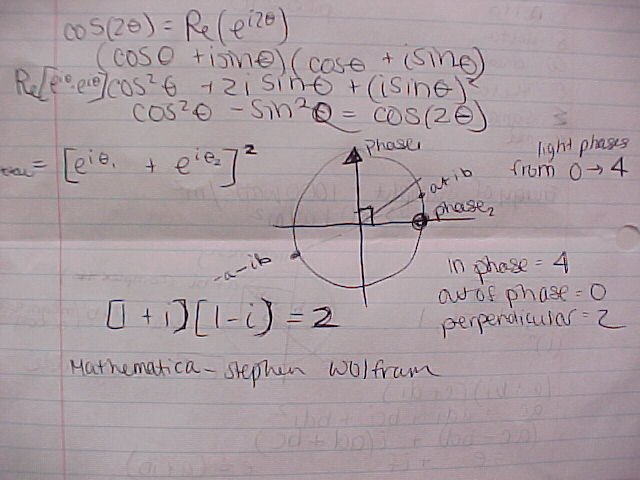 cos(2θ) = Re(e^{i2θ})
(cosθ + isinθ)(cosθ + isinθ)
Re[e^{iθ}·e^{iθ}] cos²θ + 2i sinθ + (isinθ)²
cos²θ - sin²θ = cos(2θ)
= [e^{iθ₁} + e^{iθ₂}]²
phase₁
a+ib
phase₂
-a-ib
light phases
from 0→4
in phase = 4
out of phase = 0
perpendicular = 2
[1 + i][1-i] = 2
Mathematica - Stephen Wolfram